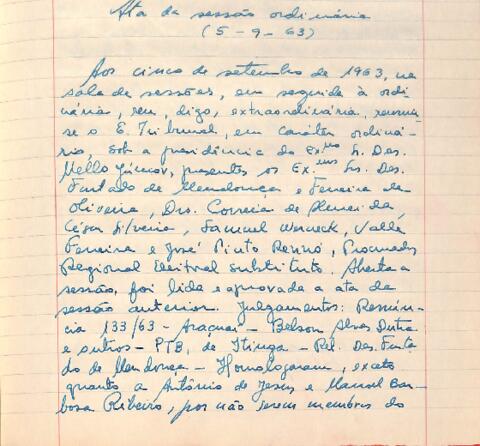 Ata da sessão ordinária
(5-9-63)
Aos cinco de setembro de 1963, na
sala de sessões, em seguida à ordi
nária, reu, digo, extraordinária, reuniu-
se o E. Tribunal, em caráter ordiná-
rio, sob a presidência do Exmo Sr. Des.
Mello Júnior, presentes os Exmos Srs. Des.
Furtado de Mendonça e Ferreira de
Oliveira, Drs. Correia de Almeida,
César Silveira, Samuel Werneck, Valle
Ferreira e José Pinto Renó, Procurador
Regional Eleitoral substituto. Aberta a
sessão, foi lida e aprovada a ata da
sessão anterior. Julgamentos: Renún-
cia 133/63 - Araçuaí - Belson Alves Dutra
e outros - PTB, de Itinga - Rel. Des. Furta
do de Mendonça - Homologaram, exceto
quanto a Antônio de Jesus e Manoel Bar-
bosa Ribeiro, por não serem membros do